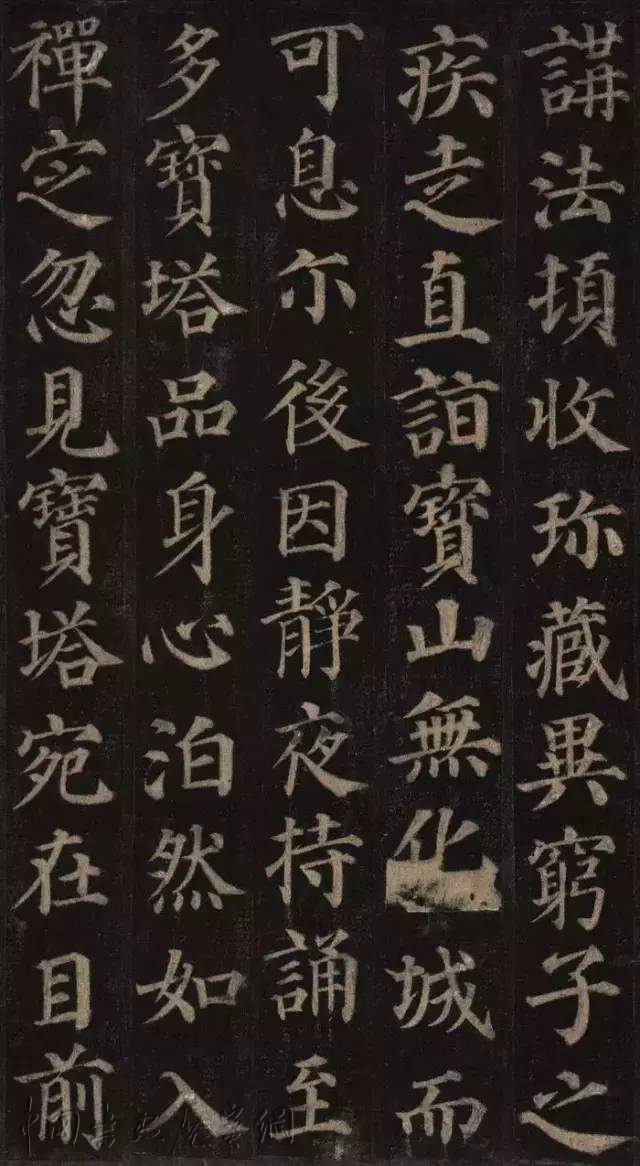 講法頓收珎藏異窮子之
疾走直詣寶山無化城而
可息尒後因靜夜持誦至
多寶塔品身心泊然如入
禪定忽見寶塔宛在目前